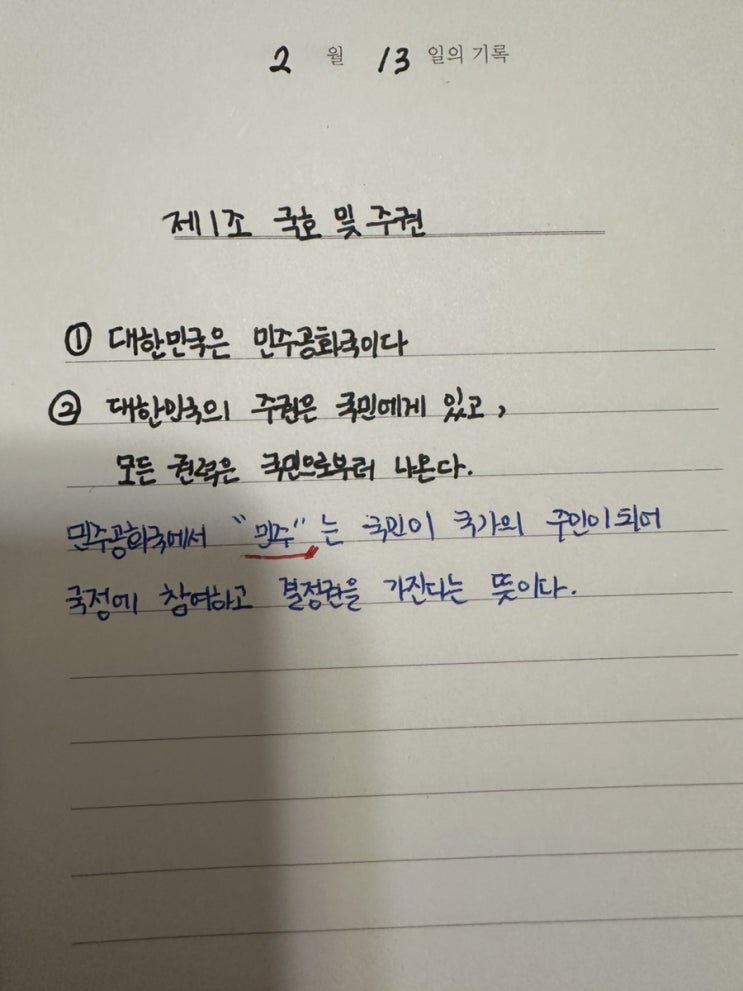 2 월 13 일의 기록
제1조 국호 및 주권
① 대한민국은 민주공화국이다
② 대한민국의 주권은 국민에게 있고,
모든 권력은 국민으로부터 나온다.
민주공화국에서 "민주"는 국민이 국가의 주인이 되어
국정에 참여하고 결정권을 가진다는 뜻이다.